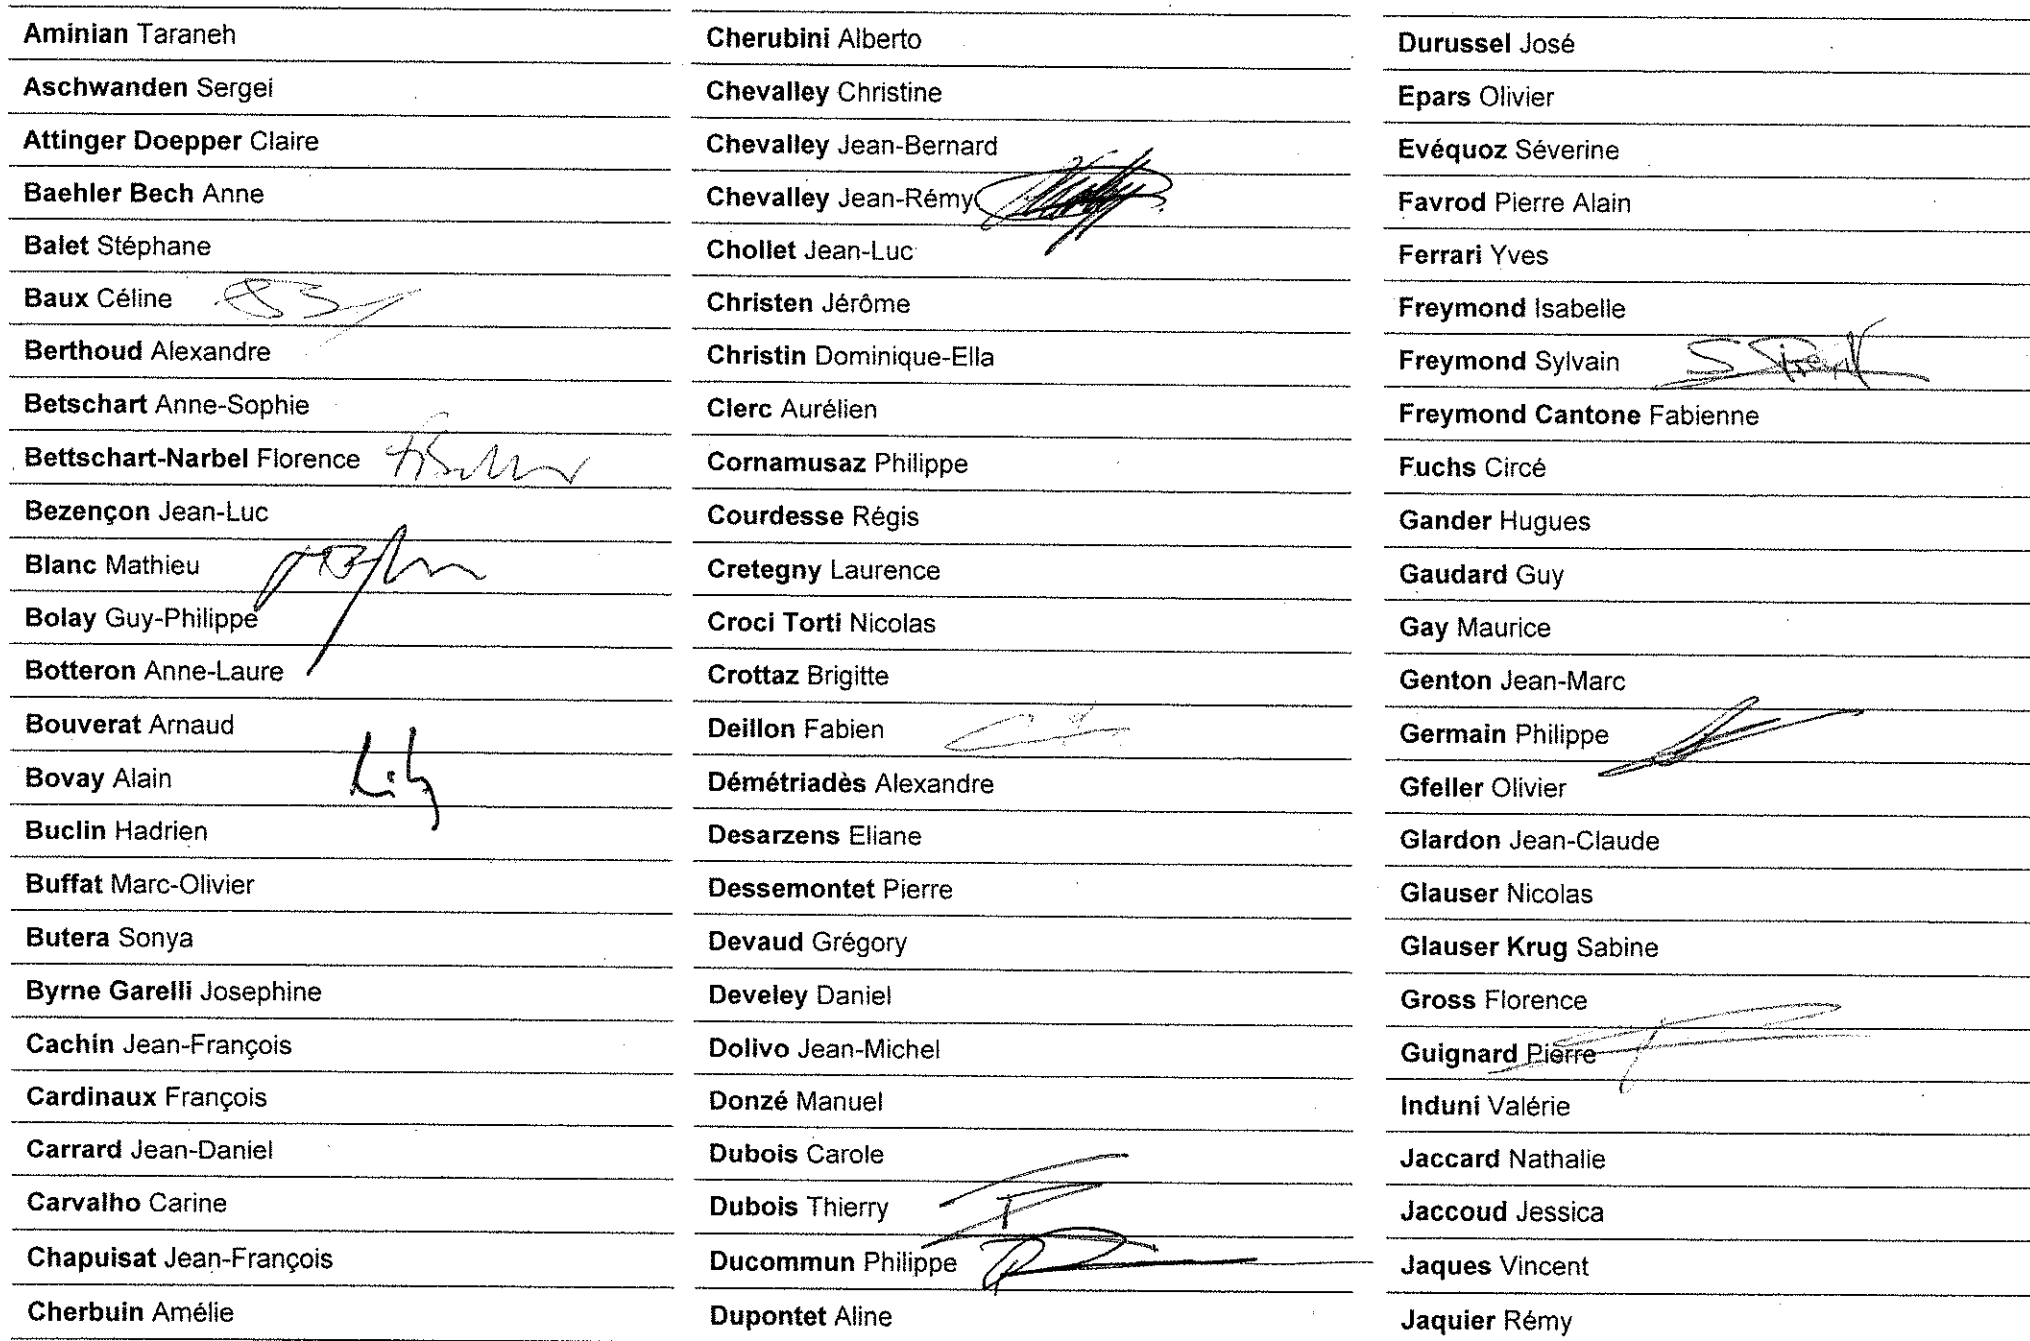 Aminian Taraneh
Aschwanden Sergei
Attinger Doepper Claire
Baehler Bech Anne
Balet Stéphane
Baux Céline
Berthoud Alexandre
Betschart Anne-Sophie
Bettschart-Narbel Florence
Bezençon Jean-Luc
Blanc Mathieu
Bolay Guy-Philippe
Botteron Anne-Laure
Bouverat Arnaud
Bovay Alain
Buclin Hadrien
Buffat Marc-Olivier
Butera Sonya
Byrne Garelli Josephine
Cachin Jean-François
Cardinaux François
Carrard Jean-Daniel
Carvalho Carine
Chapuisat Jean-François
Cherbuin Amélie
Cherubini Alberto
Chevalley Christine
Chevalley Jean-Bernard
Chevalley Jean-Rémy
Chollet Jean-Luc
Christen Jérôme
Christin Dominique-Ella
Clerc Aurélien
Cornamusaz Philippe
Courdesse Régis
Cretegny Laurence
Croci Torti Nicolas
Crottaz Brigitte
Deillon Fabien
Démétriadès Alexandre
Desarzens Eliane
Dessemontet Pierre
Devaud Grégory
Develey Daniel
Dolivo Jean-Michel
Donzé Manuel
Dubois Carole
Dubois Thierry
Ducommun Philippe
Dupontet Aline
Durussel José
Epars Olivier
Evéquoz Séverine
Favrod Pierre Alain
Ferrari Yves
Freymond Isabelle
Freymond Sylvain
Freymond Cantone Fabienne
Fuchs Circé
Gander Hugues
Gaudard Guy
Gay Maurice
Genton Jean-Marc
Germain Philippe
Gfeller Olivier
Glardon Jean-Claude
Glauser Nicolas
Glauser Krug Sabine
Gross Florence
Guignard Pierre
Induni Valérie
Jaccard Nathalie
Jaccoud Jessica
Jaques Vincent
Jaquier Rémy